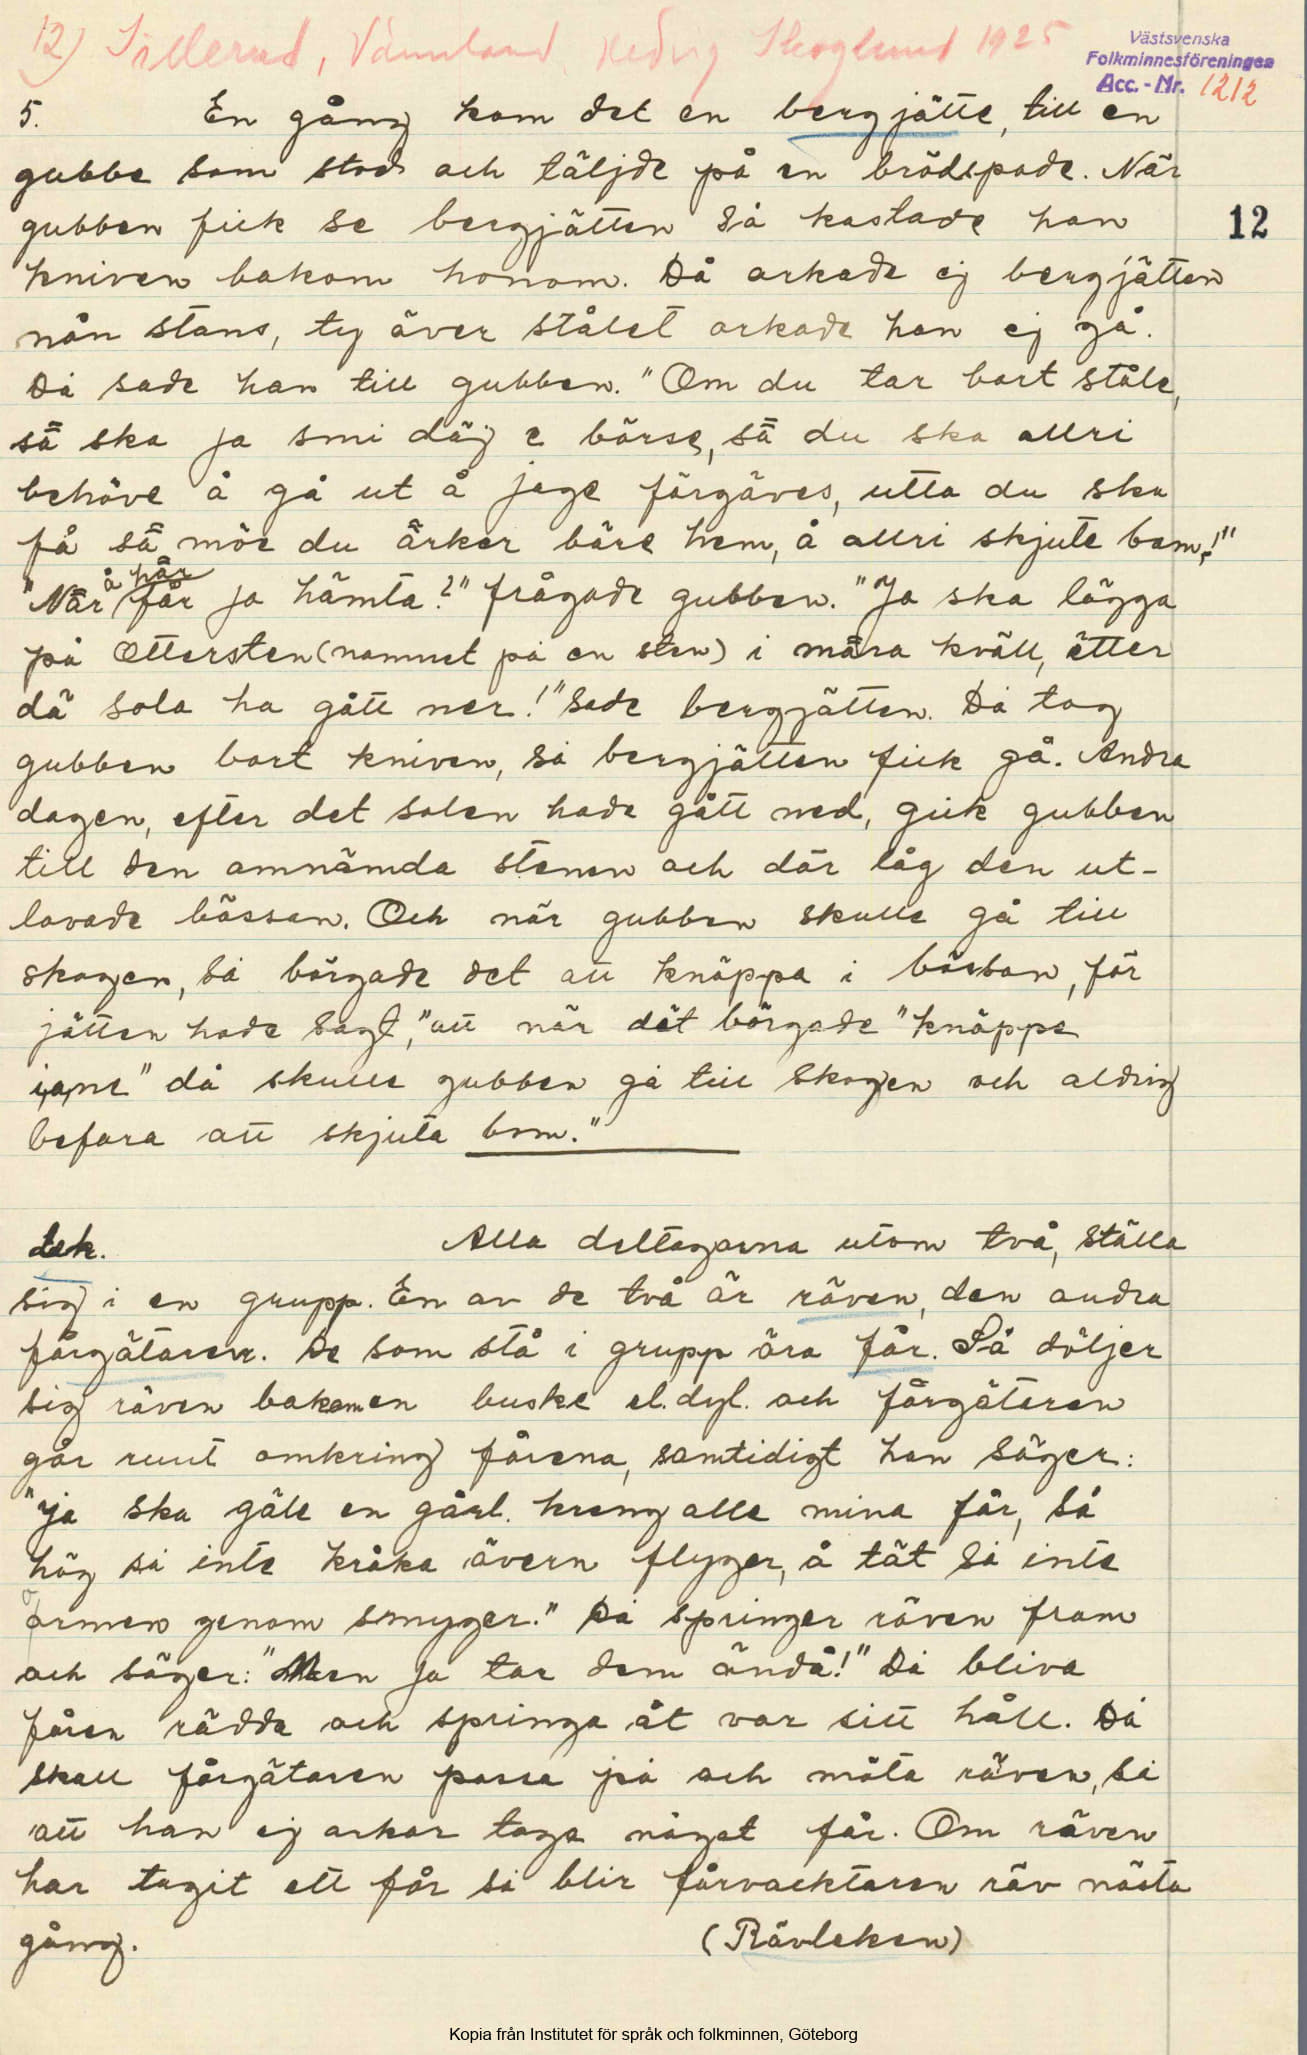 12) Sillerud, Värmland, Hedvig Skoglund 1925
Västsvenska
Folkminnesföreningen
Acc.-Nr. 1212
5. En gång kom det en bergjätte, till en
gubbe som stod och täljde på en brödspade. När
gubben fick se bergjätten så kastade han
12
kniven bakom honom. Då orkade ej bergjätten
nån stans, ty över stålet orkade han ej gå.
Då sade han till gubben. "Om du tar bort ståle,
så ska ja smi däj e börse, så du ska allri
behöve å gå ut å jage förgäves, utta du ska
få så möe du ärker bäre hem, å allri skjute bom!"
å här
"När får ja hämta?" frågade gubben. "Ja ska lägga
på Ottersten (namnet på en sten) i måra kväll, ätter
dä sola ha gått ner!" Sade bergjätten. Då tog
gubben bort kniven, så bergjätten fick gå. Andra
dagen, efter det solen hade gått ned, gick gubben
till den omnämda stenen och där låg den ut-
lovade bössan. Och när gubben skulle gå till
skogen, så börgade det att knäppa i bössan, för
jätten hade sagt, "att när dät börgade "knäppe
i'ane" då skulle gubben gå till skogen och aldrig
befara att skjuta bom."
Lek. Alla deltagarna utom två, ställa
sig i en grupp. En av de två är räven, den andra
fårgätaren. De som stå i grupp äro får. Så döljer
sig räven bakom en buske el.dyl. och fårgätaren
går runt omkring fårena, samtidigt han säger:
"Ja ska gäle en gård. kreng alle mina får, så
hög så inte kråka övern flyger, å tät så inte
ormen genom smyger." Då springer räven fram
och säger: "Men ja tar dem ändå!" Då bliva
fåren rädda och springa åt var sitt håll. Då
skall fårgätaren passa på och möta räven, så
att han ej orkar taga något får. Om räven
har tagit ett får så blir fårvacktaren räv nästa
gång. (Rävleken)
Kopia från Institutet för språk och folkminnen, Göteborg